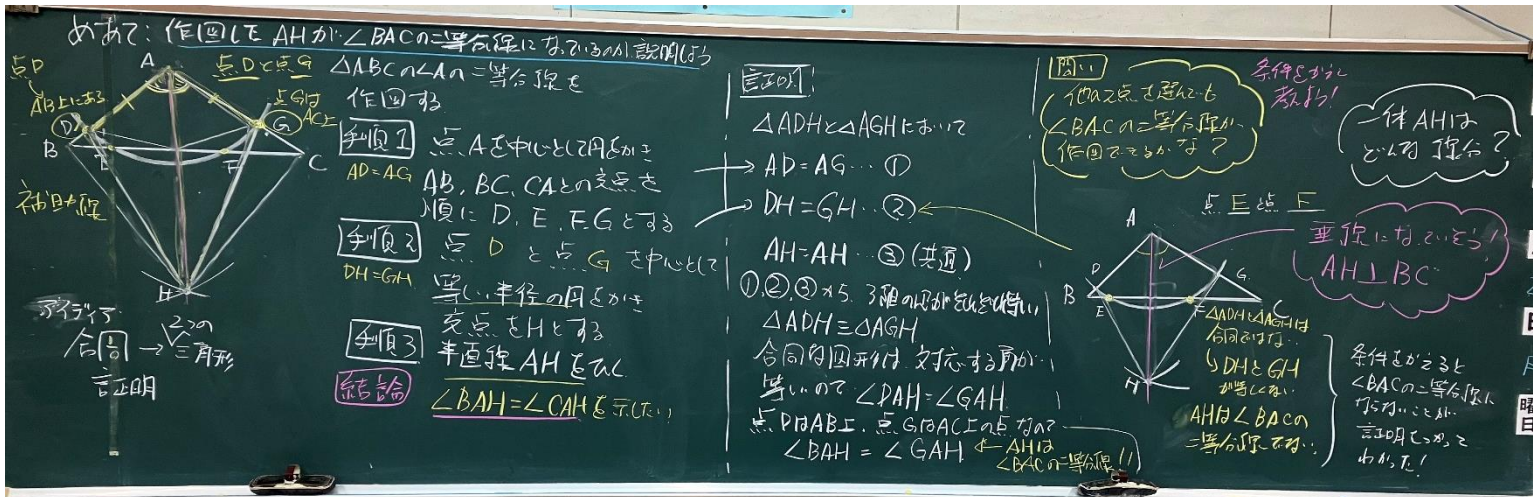 めあて：作図してAHが∠BACの二等分線になっているのか説明しよう
点D
AB上にある
点Dと点G
点Gは
AC上
A
D
G
B
E
F
C
H
補助線
アイディア
合同 → 2つの三角形
証明
△ABCの∠Aの二等分線を
作図する
手順1 点Aを中心として円をかき
AD=AG
AB、BC、CAとの交点を
順に D、E、F、Gとする
手順2 点 D と点 G を中心として
DH=GH
等しい半径の円をかき
交点をHとする
手順3 半直線AHをひく
結論 ∠BAH=∠CAHを示したい
証明
△ADHと△AGHにおいて
AD=AG…①
DH=GH…②
AH=AH…③(共通)
①,②,③から 3組の辺がそれぞれ等しい
△ADH≡△AGH
合同な図形は対応する角が
等しいので ∠DAH=∠GAH
点DはAB上、点GはAC上の点なので
∠BAH=∠GAH ← AHは
∠BACの二等分線!!
問い
他の2点を選んでも
∠BACの二等分線が
作図できるかな？
条件をかえて
考えよう!
一体AHは
どんな線分？
点Eと点F
垂線になっていそう!
AH⊥BC
A
D
G
B
E
F
C
H
△ADHと△AGHは
合同ではない..
↳DHとGH
が等しくない
AHは∠BACの
二等分線でない..
条件をかえると
∠BACの二等分線に
ならないことが
証明をつかって
わかった!
曜
日